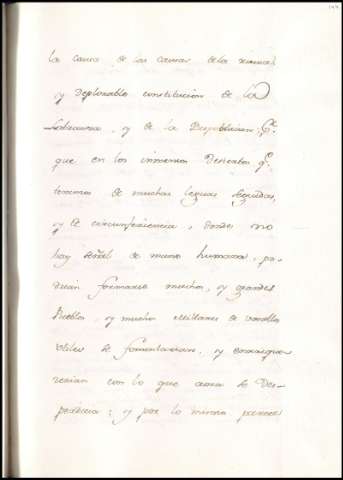 la causa de las causas de la ruina,
y deplorable constitucion de la
Labranza, y de la Despoblacion; Pr.
que en los inmensos Desiertos qe.
tenemos de muchas leguas seguidas,
y de circunferencia, donde no
hay señal de mano humana, po-
drian formarse muchos, y grandes
Pueblos, y muchos millares de vasallos
utiles se fomentarian, y enriquece-
rian con lo que ahora se Des-
perdicia; y por lo mismo parece